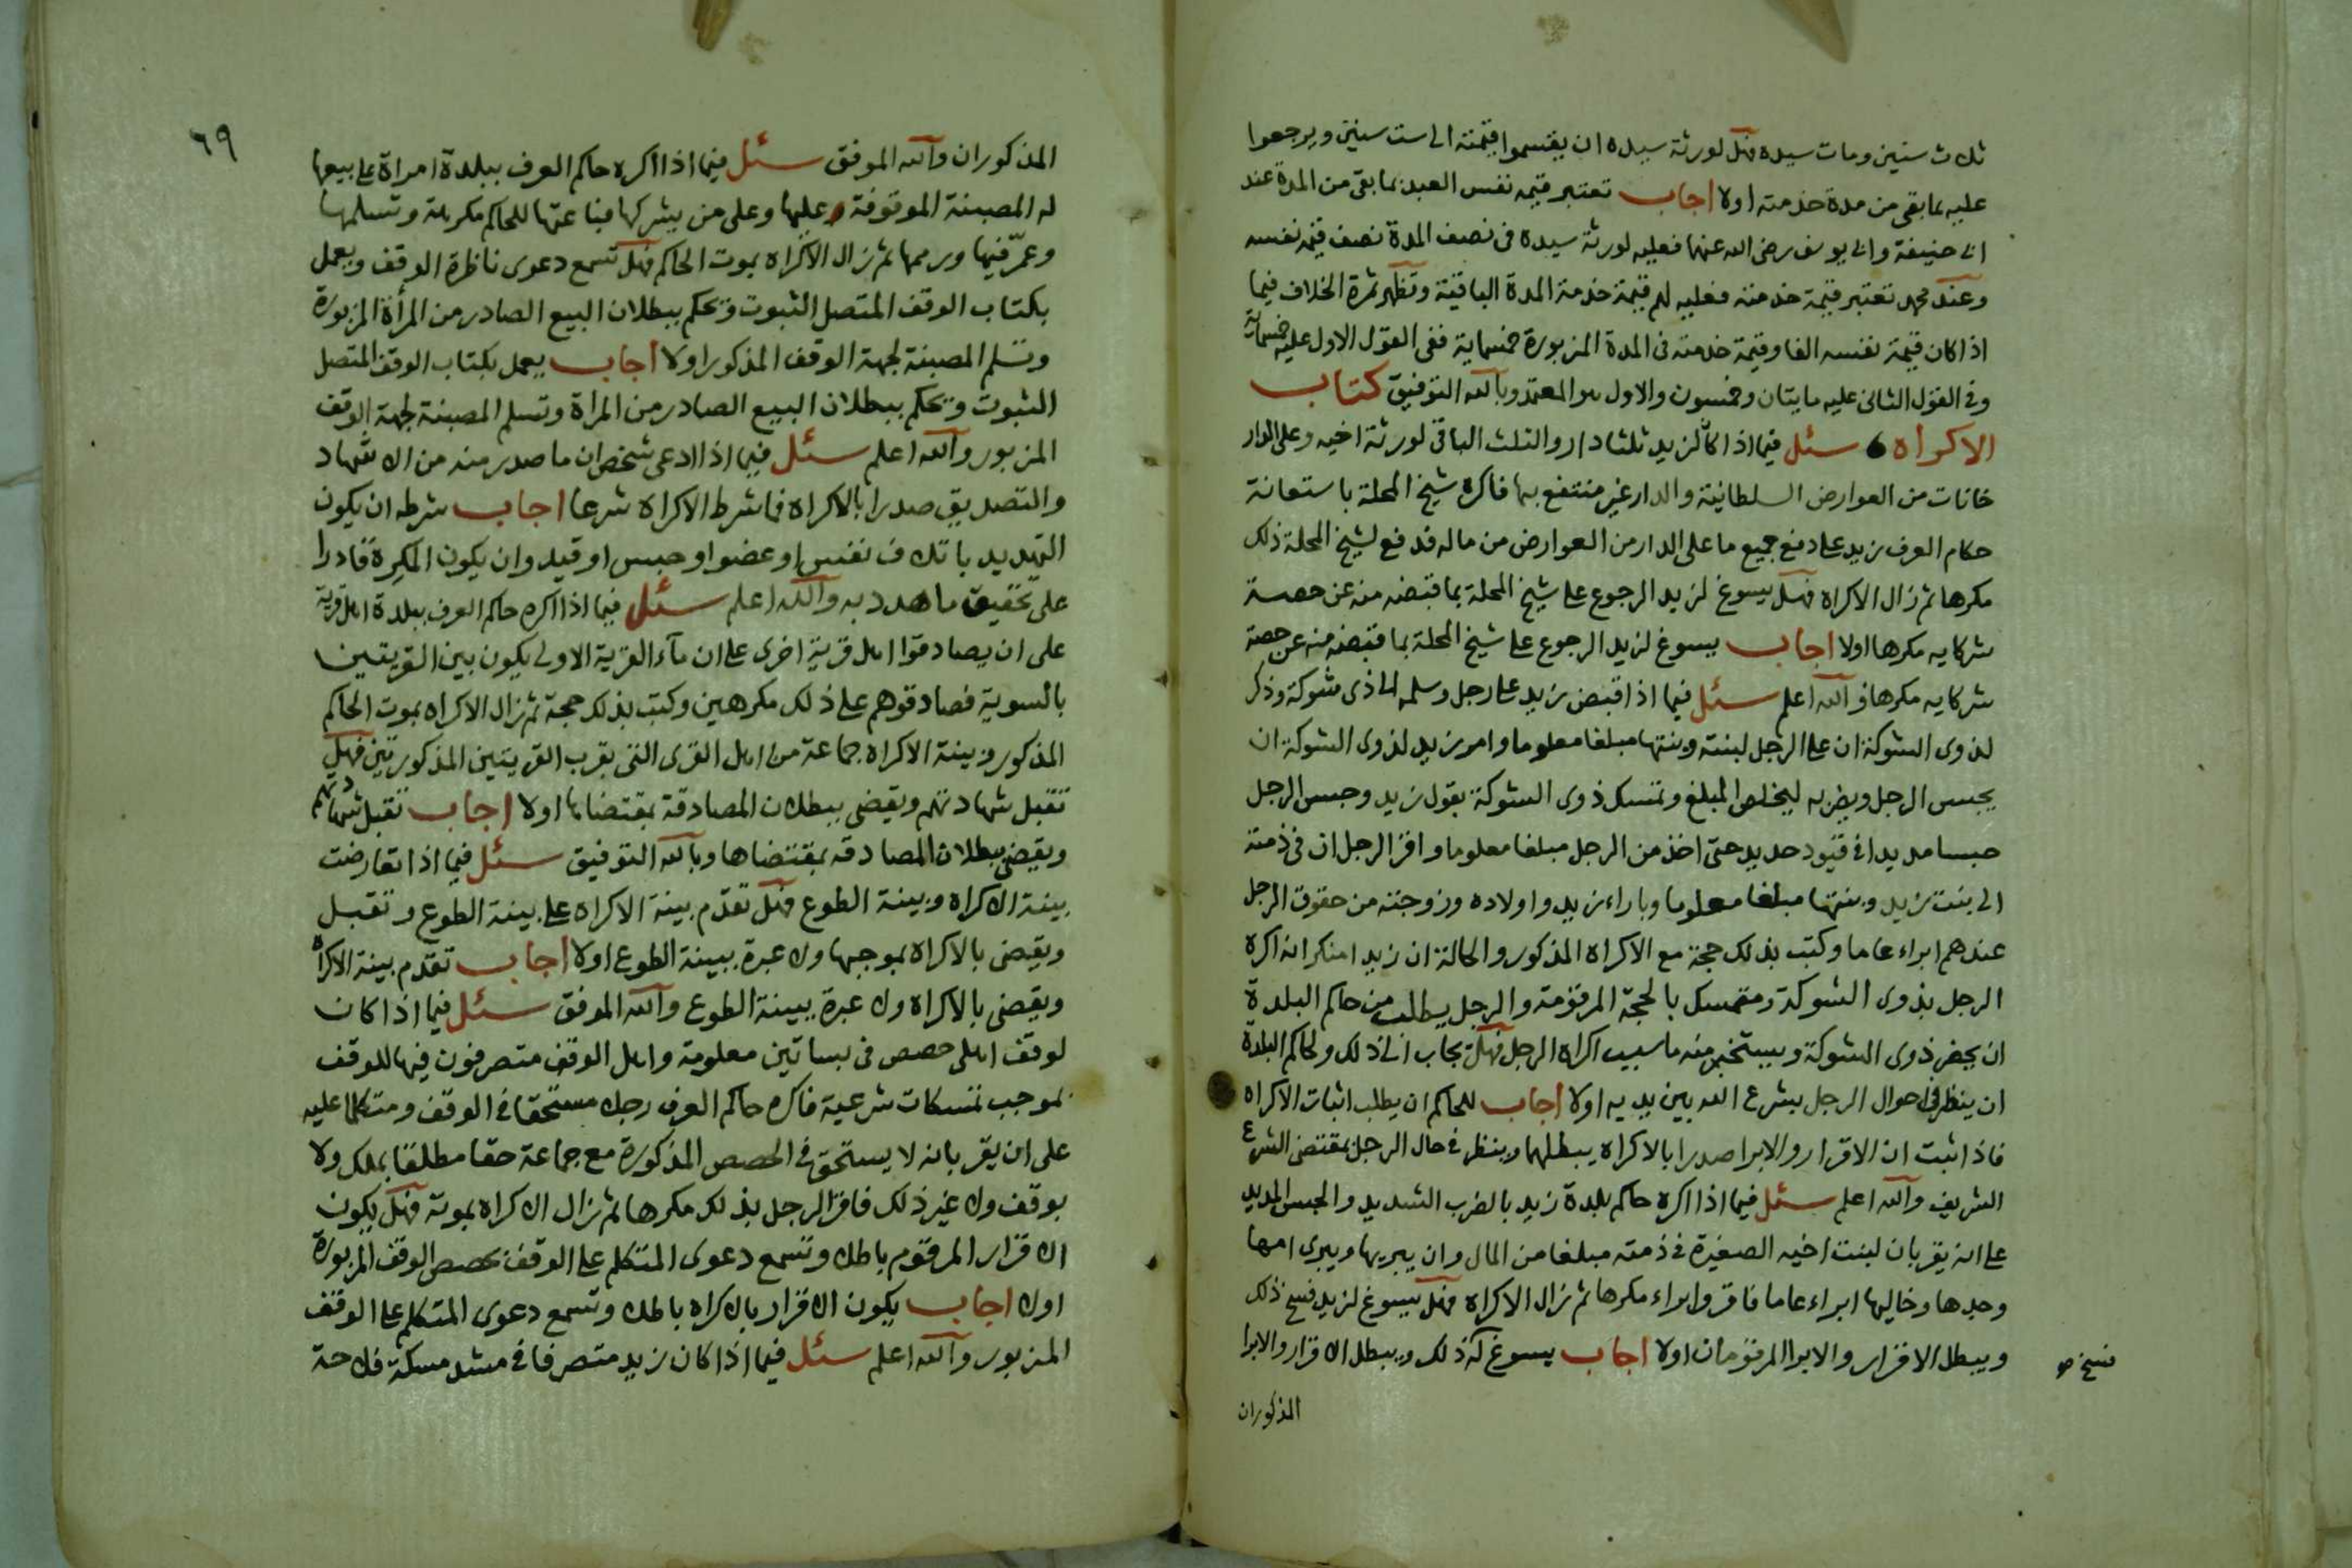 ثلاث سنين ومات سيده فهل لورثة سيده ان يقتسموا قيمته الى ست سنين ويرجعوا
عليه بما بقى من مدة خدمته اولا اجاب تعتبر قيمه نفس العبد بما بقى من المدة عند
ابى حنيفة وابى يوسف رضى الله عنهما فعليه لورثة سيده فى نصف المدة نصف قيمه نفسه
وعند محمد تعتبر قيمة خدمته فعليه لهم قيمة خدمة المدة الباقية وتظهر ثمرة الخلاف فيما
اذا كان قيمة نفسه الفا وقيمة خدمته فى المدة المزبورة خمسماية ففى القول الاول عليه خمسماية
وفى القول الثانى عليه مايتان وخمسون والاول هو المعتمد وبالله التوفيق كتاب
الاكراه سئل فيما اذا كان لزيد ثلثا دار والثلث الباقى لورثة اخيه وعلى الدار
خانات من العوارض السلطانية والدار غير منتفع بها فاكره شيخ المحلة باستعانة
حكام العرف زيد على دفع جميع ما على الدار من العوارض من ماله فدفع لشيخ المحلة ذلك
مكرها ثم زال الاكراه فهل يسوغ لزيد الرجوع على شيخ المحلة بما قبضه منه عن حصة
شركايه مكرها اولا اجاب يسوغ لزيد الرجوع على شيخ المحلة بما قبضه منه عن حصة
شركايه مكرها والله اعلم سئل فيما اذا قبض زيد على رجل وسلمه الى ذى شوكة وذكر
لذوى الشوكة ان على الرجل لبنته وبنتها مبلغا معلوما وامر زيد لذوى الشوكة ان
يحبس الرجل ويضربه ليخلص المبلغ وتمسك ذوى الشوكة بقول زيد وحبس الرجل
حبسا مديدا فى قيود حديد حتى اخذ من الرجل مبلغا معلوما واقر الرجل ان فى ذمته
الى بنت زيد وبنتها مبلغا معلوما وباراء زيد واولاده وزوجته من حقوق الرجل
عندهم ابراء عاما وكتب بذلك حجة مع الاكراه المذكور والحالة ان زيدا منكر انه اكره
الرجل بذوى الشوكة ومتمسك بالحجة المرقومة والرجل يطلب من حاكم البلدة
ان يحضر ذوى الشوكة ويستخبر منه ما سبب اكراه الرجل فهل يجاب الى ذلك ولحاكم البلدة
ان ينظر فى احوال الرجل بشرع الله بين يديه اولا اجاب للحاكم ان يطلب اثبات الاكراه
فاذا ثبت ان الاقرار والابرا صدرا بالاكراه يبطلهما وينظر فى حال الرجل بمقتضى الشرع
الشريف والله اعلم سئل فيما اذا اكره حاكم بلدة زيد بالضرب الشديد والحبس المديد
على انه يقر بان لبنت اخيه الصغيرة فى ذمته مبلغا من المال وان يبريها ويبرى امها
وجدها وخاليها ابراء عاما فاقر وابراء مكرها ثم زال الاكراه فهل يسوغ لزيد فسخ ذلك
ويبطل الاقرار والابرا المرقومان اولا اجاب يسوغ له ذلك ويبطل الاقرار والابرا
فسخ صح
المذكوران
٦٩
المذكوران والله الموفق سئل فيما اذا اكره حاكم العرف ببلدة امراة على بيعها
له المصبنة الموقوفة عليها وعلى من يشركها فباعتها للحاكم مكرهة وتسلمها
وعمّر فيها ورممها ثم زال الاكراه بموت الحاكم فهل تسمع دعوى ناظرة الوقف ويعمل
بكتاب الوقف المتصل الثبوت ويحكم ببطلان البيع الصادر من المرأة المزبورة
وتسلم المصبنة لجهة الوقف المذكور اولا اجاب يعمل بكتاب الوقف المتصل
الثبوت ويحكم ببطلان البيع الصادر من المراة وتسلم المصبنة لجهة الوقف
المزبور والله اعلم سئل فيما اذا ادعى شخص ان ما صدر منه من الاشهاد
والتصديق صدرا بالاكراه فما شرط الاكراه شرعا اجاب شرطه ان يكون
التهديد باتلاف نفس او عضو او حبس او قيد وان يكون المكرِه قادرا
على تحقيق ما هدد به والله اعلم سئل فيما اذا اكره حاكم العرف ببلدة اهل قرية
على ان يصادقوا اهل قرية اخرى على ان ماء القرية الاولى يكون بين القريتين
بالسوية فصادقوهم على ذلك مكرهين وكتب بذلك حجة ثم زال الاكراه بموت الحاكم
المذكور وبينة الاكراه جماعة من اهل القرى التى بقرب القريتين المذكورتين فهل
تقبل شهادتهم ويقضى ببطلان المصادقة بمقتضاها اولا اجاب تقبل شهادتهم
ويقضى ببطلان المصادقه بمقتضاها وبالله التوفيق سئل فيما اذا تعارضت
بينة الاكراه وبينة الطوع فهل تقدّم بينة الاكراه على بينة الطوع وتقبل
ويقضى بالاكراه بموجبها ولا عبرة ببينة الطوع اولا اجاب تقدم بينة الاكراه
ويقضى بالاكراه ولا عبرة ببينة الطوع والله الموفق سئل فيما اذا كان
لوقف اهلى حصص فى بساتين معلومة واهل الوقف متصرفون فيها للوقف
بموجب تمسكات شرعية فاكره حاكم العرف رجلا مستحقا فى الوقف ومتكلما عليه
على ان يقر بانه لا يستحق فى الحصص المذكورة مع جماعة حقا مطلقا بملك ولا
بوقف ولا غير ذلك فاقر الرجل بذلك مكرها ثم زال الاكراه بموته فهل يكون
الاقرار المرقوم باطلا وتسمع دعوى المتكلم على الوقف بحصص الوقف المزبورة
اولا اجاب يكون الاقرار بالاكراه باطلا وتسمع دعوى المتكلم على الوقف
المزبور والله اعلم سئل فيما اذا كان زيد متصرفا فى مشد مسكة فلاحة